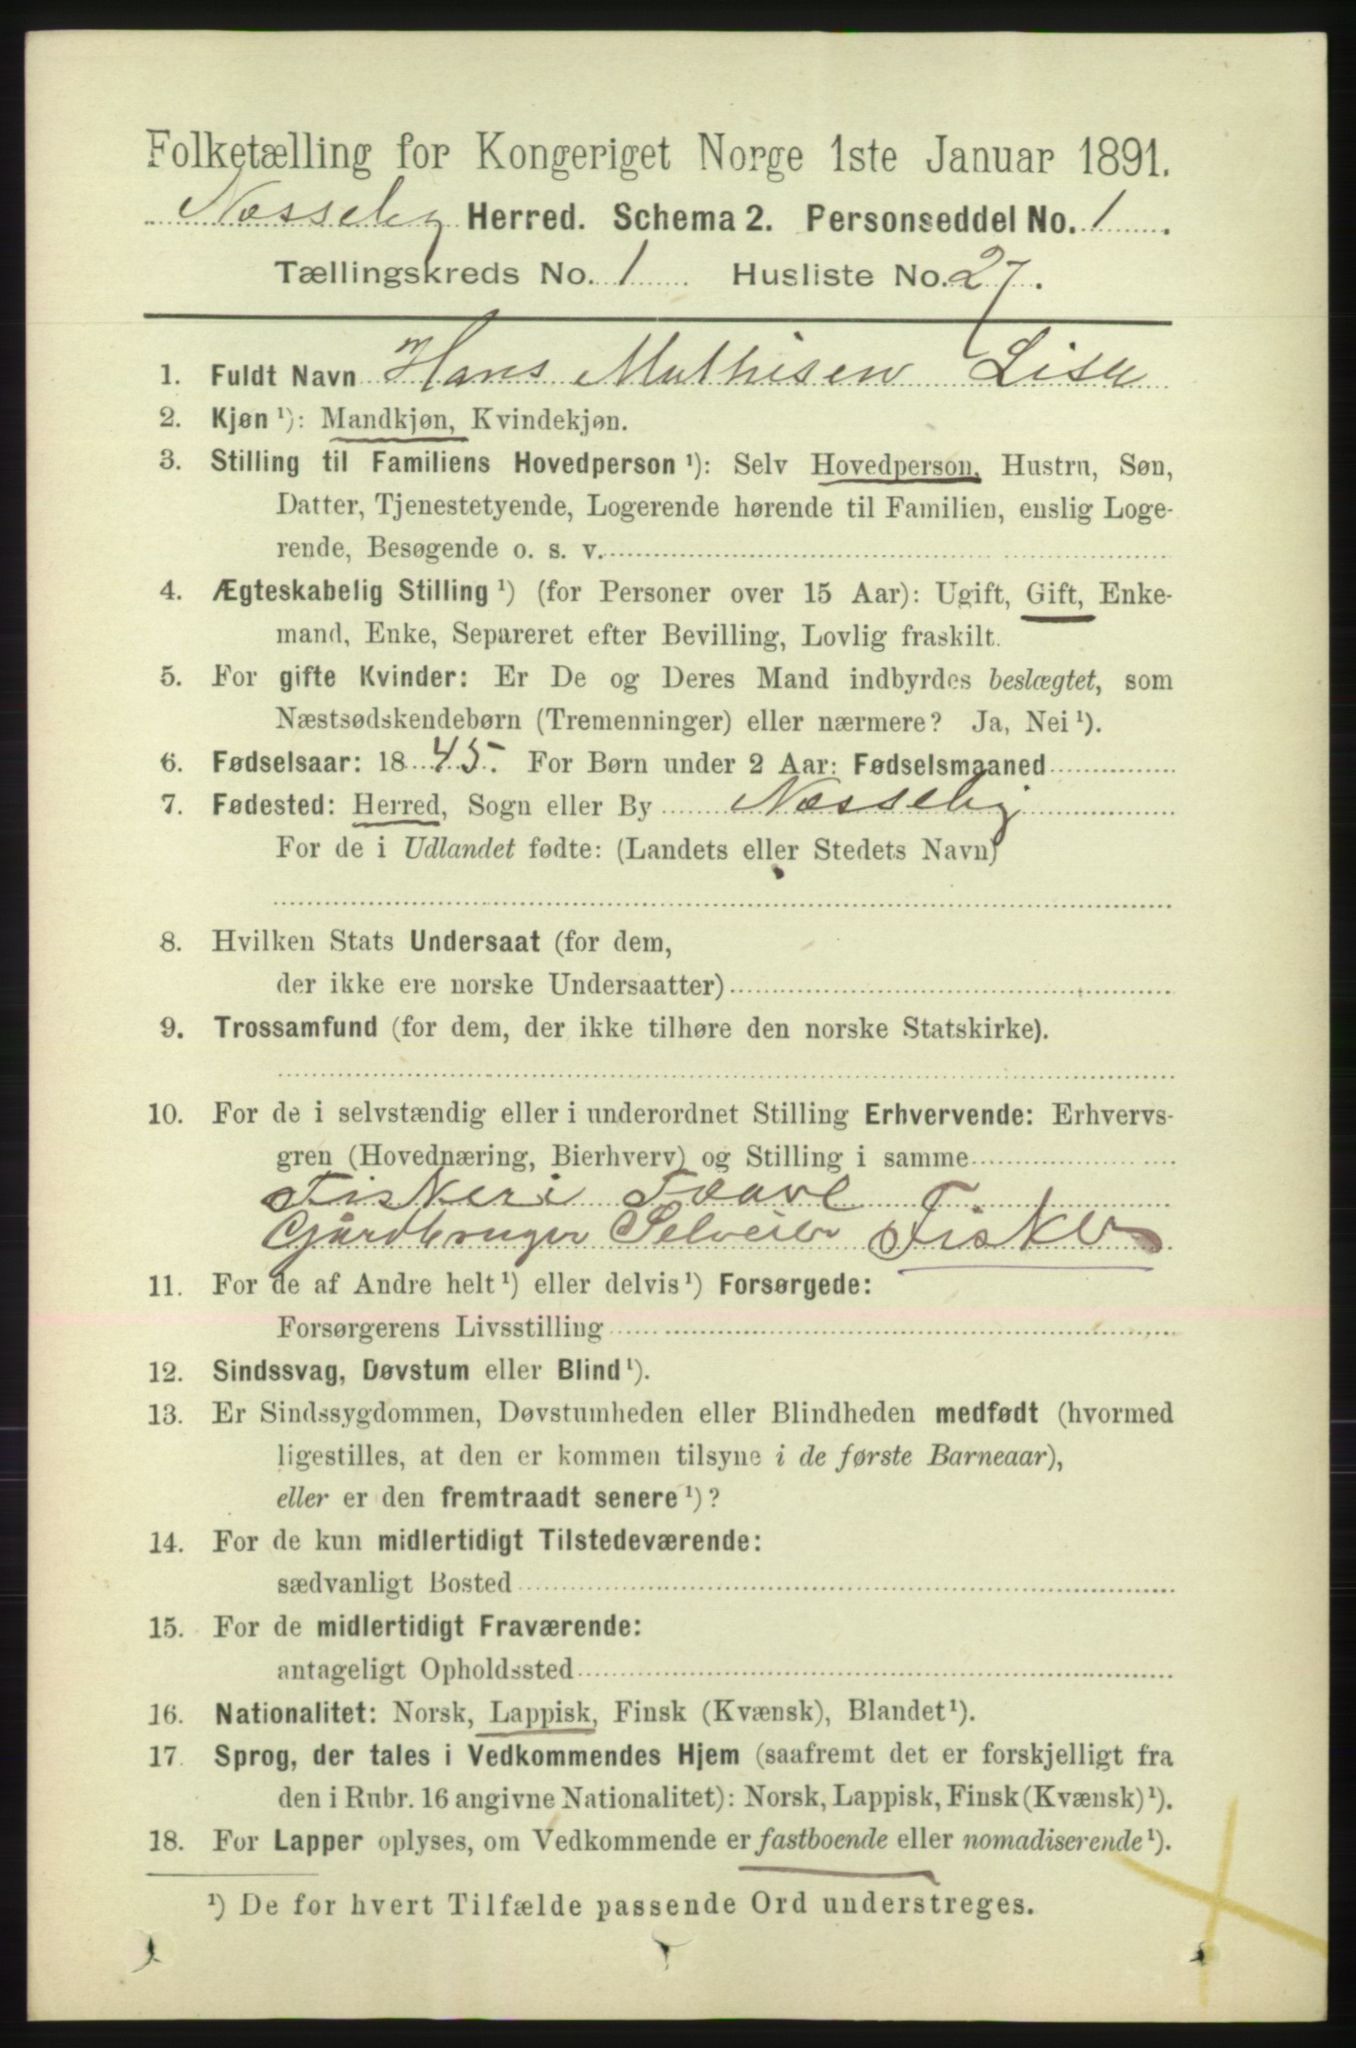 Folketælling for Kongeriget Norge 1ste Januar 1891.
Nesseby Herred. Schema 2. Personseddel No. 1.
Tællingskreds No. 1 Husliste No. 27.
1. Fuldt Navn Hans Mathisen
2. Kjøn ¹): Mandkjøn, Kvindekjøn.
3. Stilling til Familiens Hovedperson ¹): Selv Hovedperson, Hustru, Søn,
Datter, Tjenestetyende, Logerende hørende til Familien, enslig Loge-
rende, Besøgende o. s. v.
4. Ægteskabelig Stilling ¹) (for Personer over 15 Aar): Ugift, Gift, Enke-
mand, Enke, Separeret efter Bevilling, Lovlig fraskilt.
5. For gifte Kvinder: Er De og Deres Mand indbyrdes beslægtet, som
Næstsødskendebørn (Tremenninger) eller nærmere? Ja, Nei ¹).
6. Fødselsaar: 1845. For Børn under 2 Aar: Fødselsmaaned
7. Fødested: Herred, Sogn eller By Nesseby
For de i Udlandet fødte: (Landets eller Stedets Navn)
8. Hvilken Stats Undersaat (for dem,
der ikke ere norske Undersaatter)
9. Trossamfund (for dem, der ikke tilhøre den norske Statskirke).
10. For de i selvstændig eller i underordnet Stilling Erhvervende: Erhvervs-
gren (Hovednæring, Bierhverv) og Stilling i samme
Fiskeri
Gårdbruger Selveier Fisker
11. For de af Andre helt ¹) eller delvis ¹) Forsørgede:
Forsørgerens Livsstilling
12. Sindssvag, Døvstum eller Blind ¹).
13. Er Sindssygdommen, Døvstumheden eller Blindheden medfødt (hvormed
ligestilles, at den er kommen tilsyne i de første Barneaar),
eller er den fremtraadt senere ¹)?
14. For de kun midlertidigt Tilstedeværende:
sædvanligt Bosted
15. For de midlertidigt Fraværende:
antageligt Opholdssted
16. Nationalitet: Norsk, Lappisk, Finsk (Kvænsk), Blandet ¹).
17. Sprog, der tales i Vedkommendes Hjem (saafremt det er forskjelligt fra
den i Rubr. 16 angivne Nationalitet): Norsk, Lappisk, Finsk (Kvænsk) ¹).
18. For Lapper oplyses, om Vedkommende er fastboende eller nomadiserende ¹).
¹) De for hvert Tilfælde passende Ord understreges.